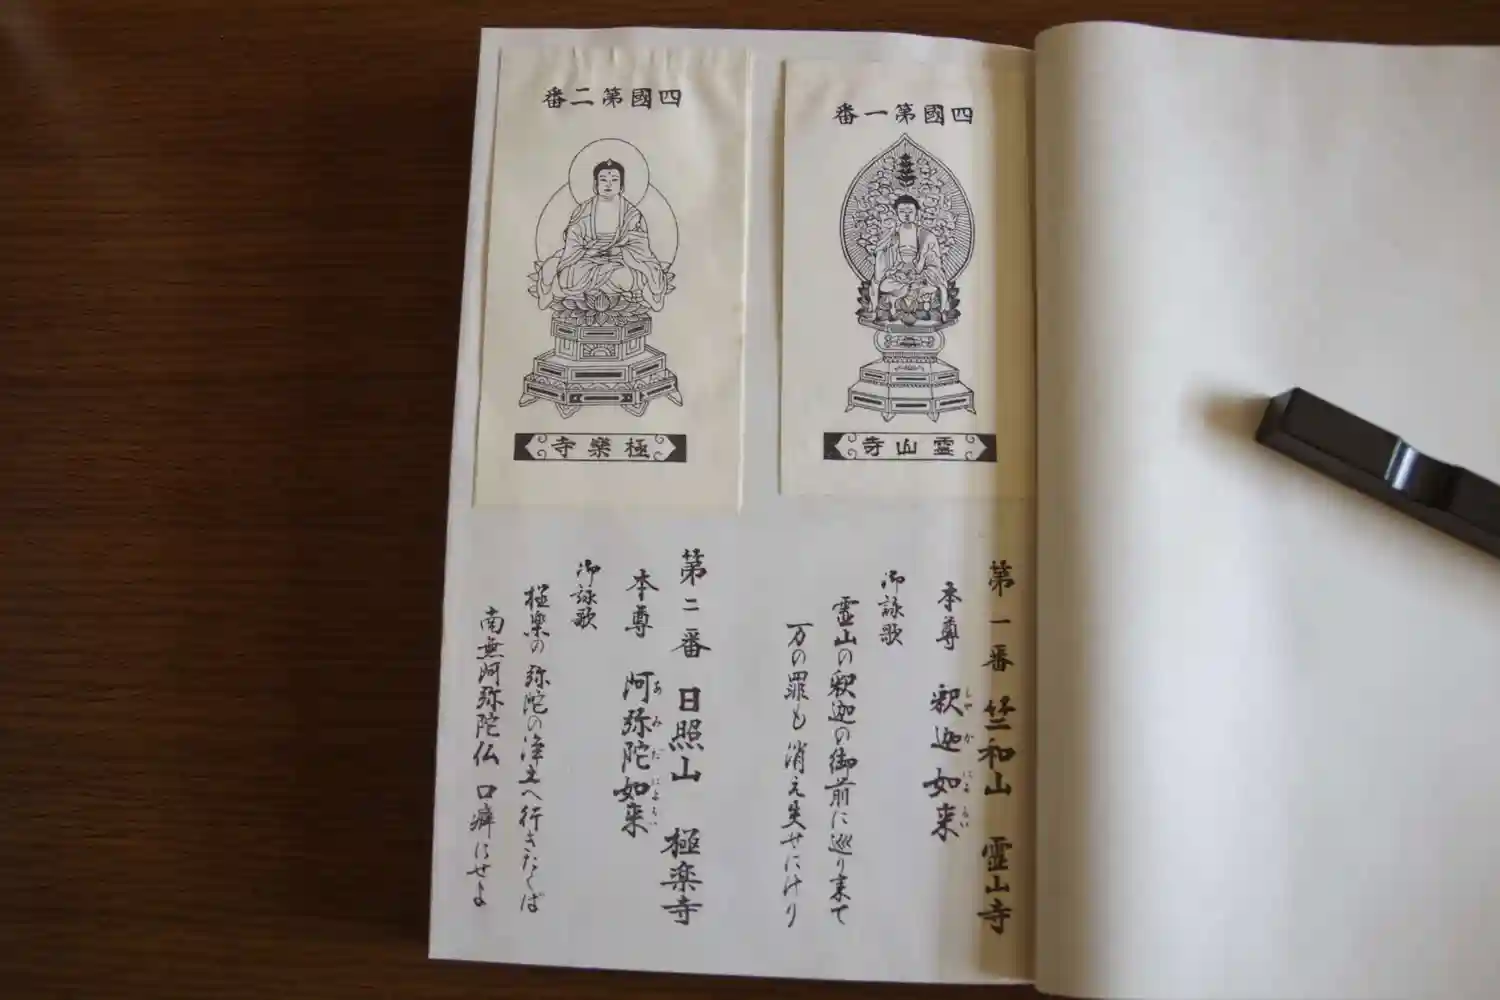 四國第一番
霊山寺
第一番 竺和山 霊山寺
本尊 釈迦如来
しゃかにょらい
御詠歌
霊山の釈迦の御前に巡り来て
万の罪も消え失せにけり
四國第二番
極樂寺
第二番 日照山 極楽寺
本尊 阿弥陀如来
あみだにょらい
御詠歌
極楽の弥陀の浄土へ行きたくば
南無阿弥陀仏口癖にせよ